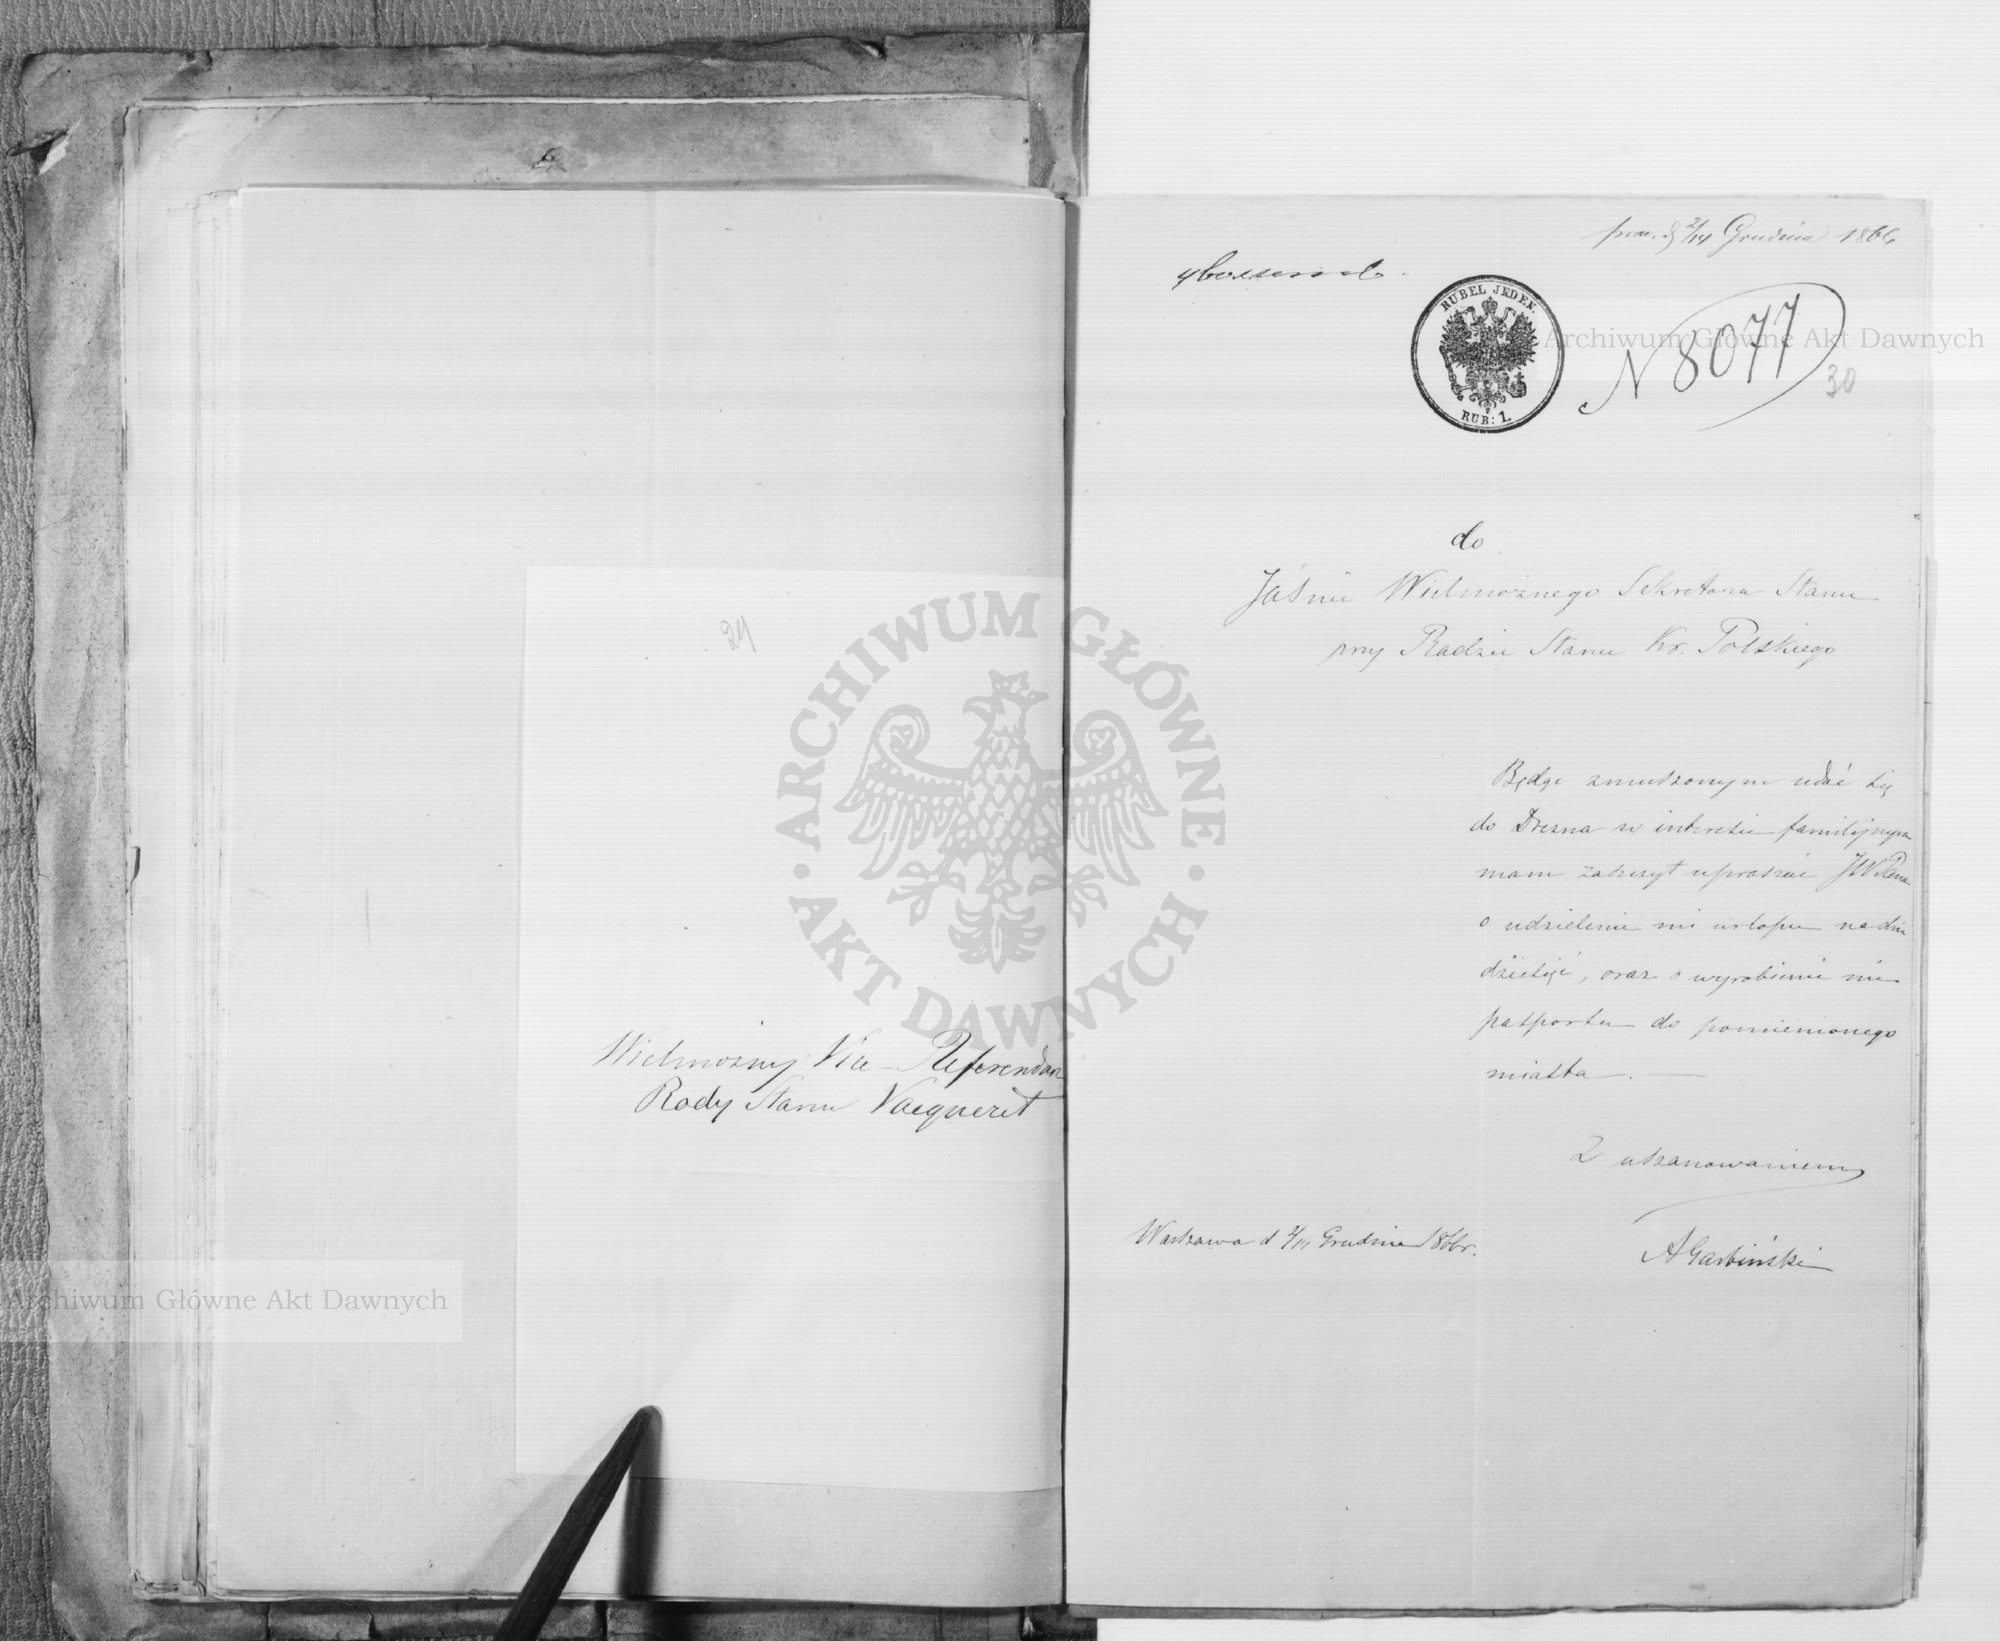 29
Wielmożny Vice-Referendarz
Rady Stanu Vacqueret
prez. d 2/14 Grudnia 1866
RUBEL JEDEN.
RUB: 1.
N 8077
30
do
Jaśnie Wielmożnego Sekretarza Stanu
przy Radzie Stanu Kr. Polskiego
Będąc zmuszonym udać się
do Drezna w interesie familijnym
mam zaszczyt upraszać JW Pana
o udzielenie mi urlopu na dni
dziesięć, oraz o wyrobienie mi
paszportu do pomienionego
miasta.
Z uszanowaniem
Warszawa d 2/14 Grudnia 1866 r.
AGarbiński
ARCHIWUM GŁÓWNE AKT DAWNYCH
Archiwum Główne Akt Dawnych
Archiwum Główne Akt Dawnych